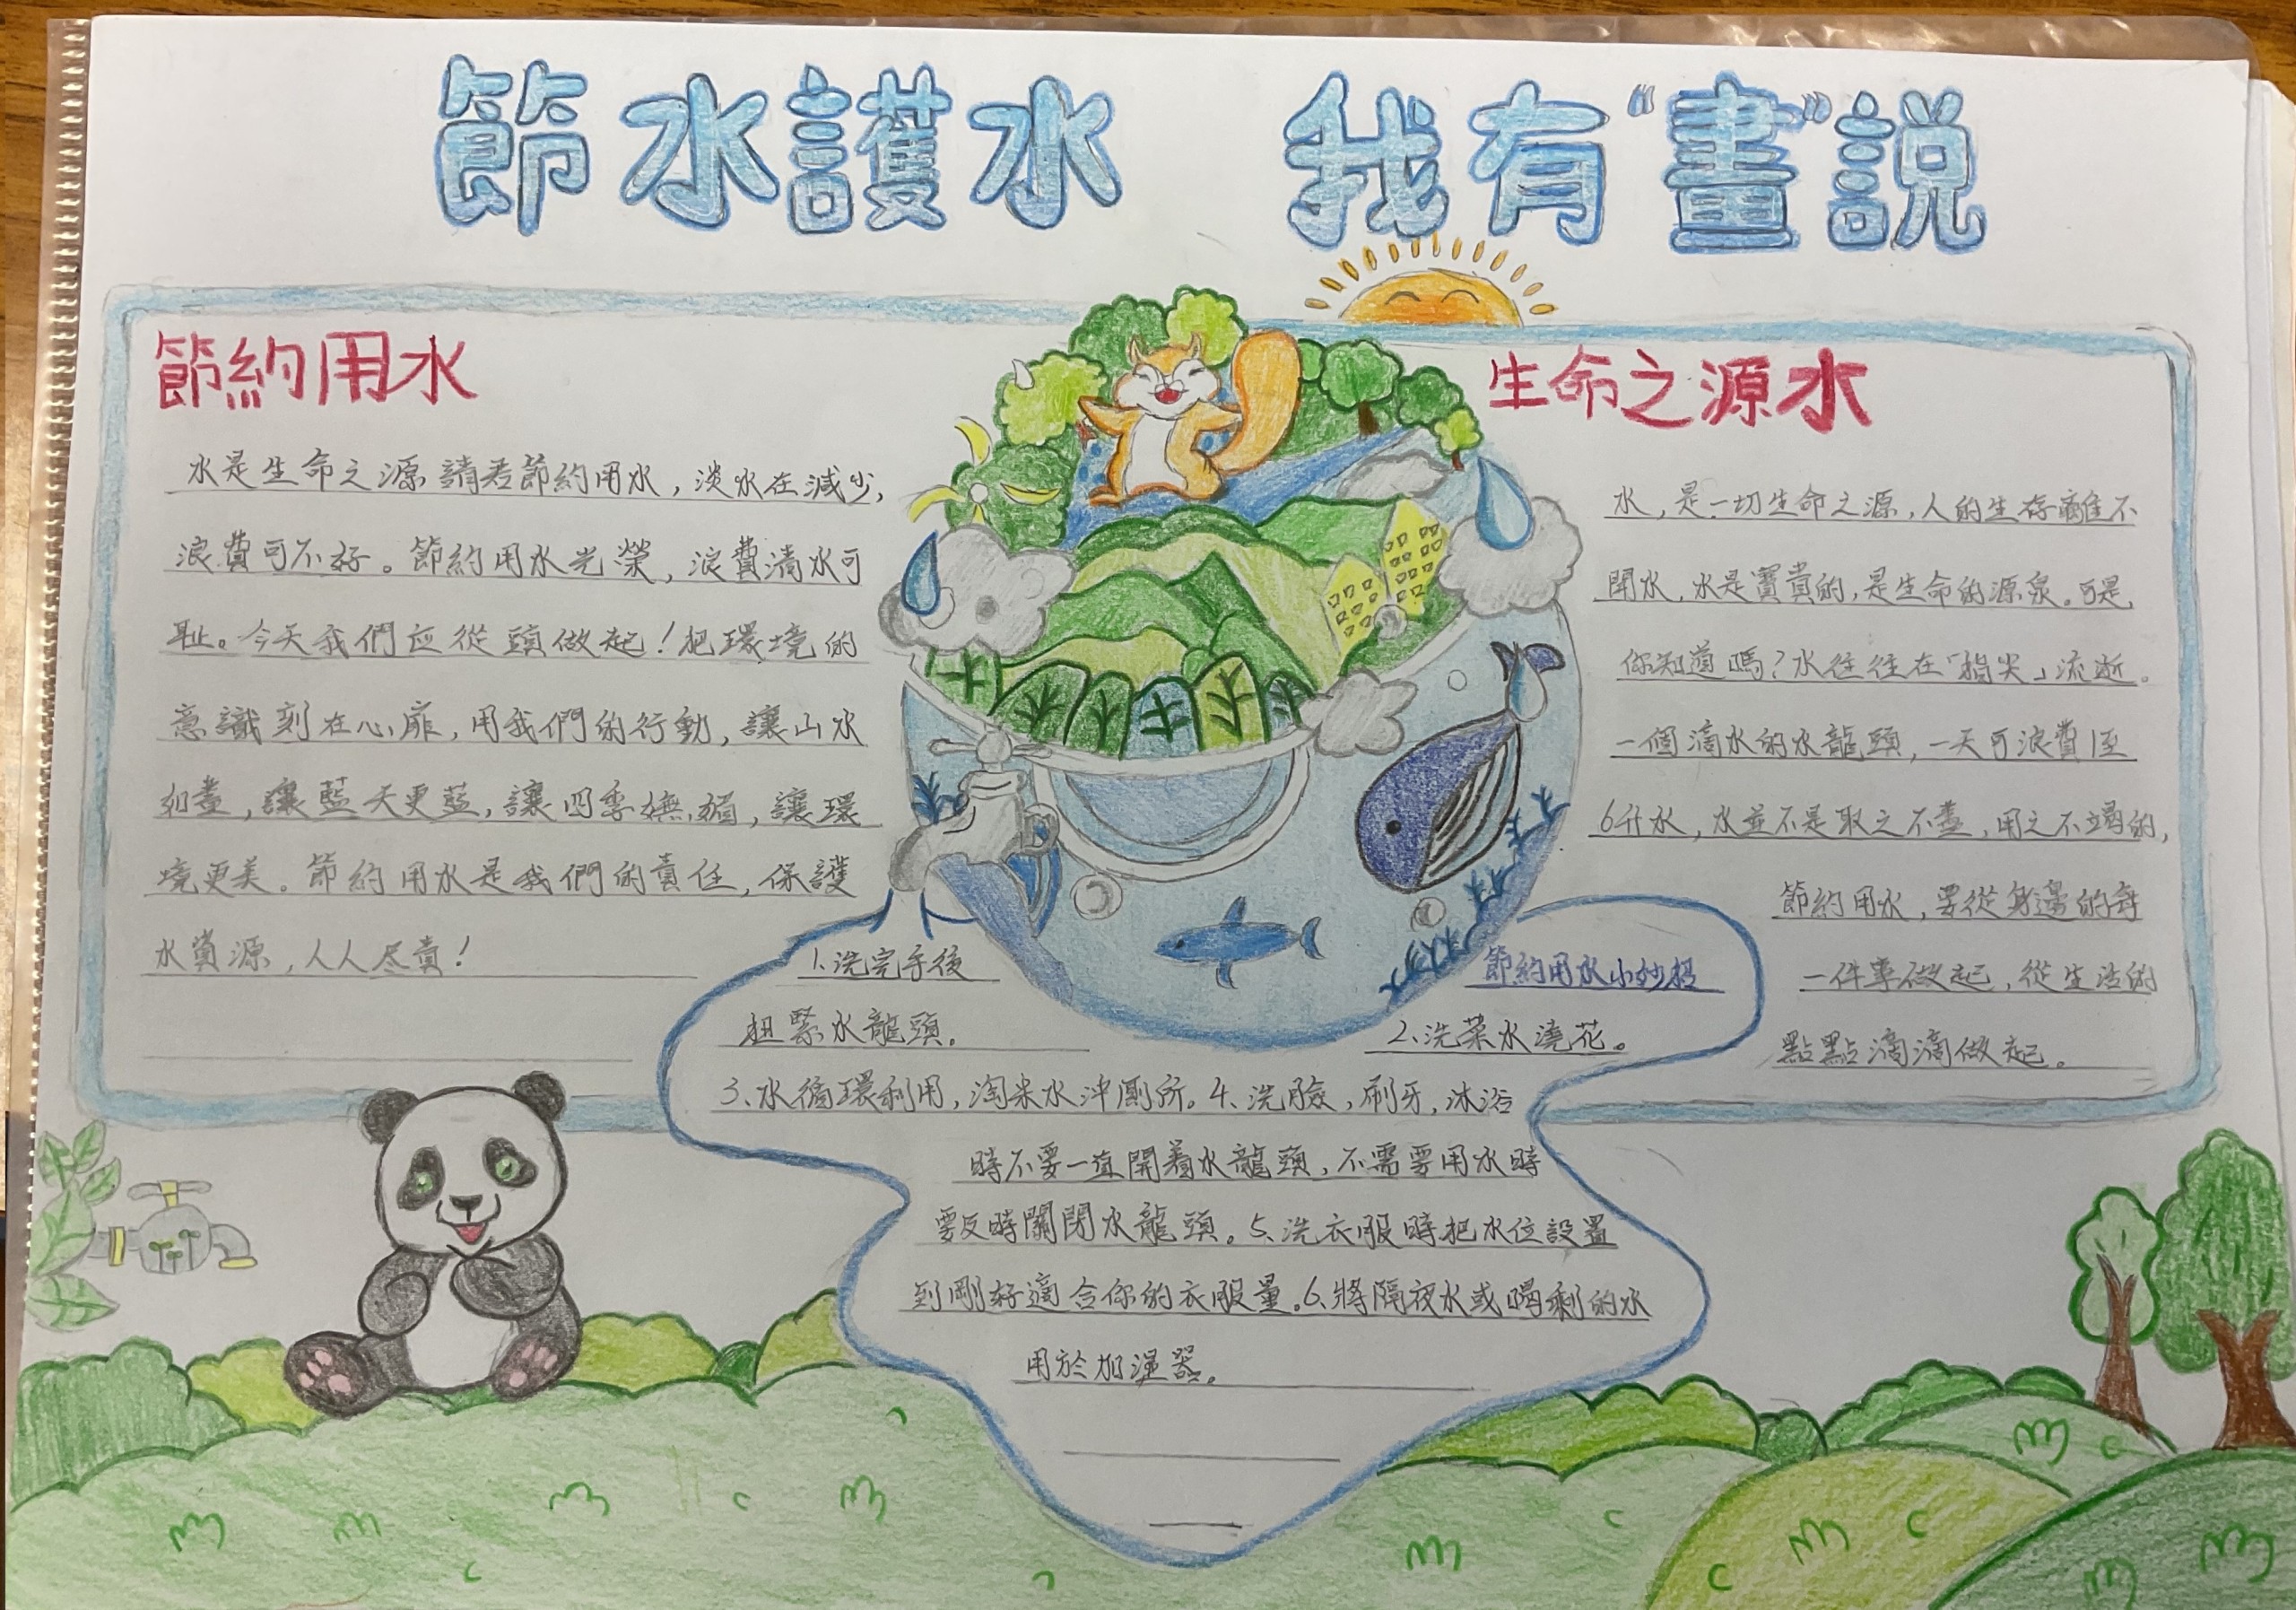 節水護水 我有“畫”説
節約用水
水是生命之源請君節約用水，淡水在減少，
浪費可不好。節約用水光榮，浪費清水可
耻。今天我們应從頭做起！把環境的
意識刻在心扉，用我們的行動，讓山水
如畫，讓藍天更藍，讓四季嫵媚，讓環
境更美。節約用水是我們的責任，保護
水資源，人人尽責！
生命之源水
水，是一切生命之源，人的生存離不
開水，水是寶貴的，是生命的源泉。可是，
你知道嗎？水往往在「指尖」流逝。
一個滴水的水龍頭，一天可浪費1至
6升水，水並不是取之不盡，用之不竭的，
節約用水，要從身邊的每
一件事做起，從生活的
點點滴滴做起。
節約用水小妙招
1、洗完手後
扭緊水龍頭。
2、洗菜水澆花。
3、水循環利用，淘米水沖廁所。4、洗臉，刷牙，沐浴
時不要一直開着水龍頭，不需要用水時
要及時關閉水龍頭。5、洗衣服時把水位設置
到剛好適合你的衣服量。6、將隔夜水或喝剩的水
用於加濕器。